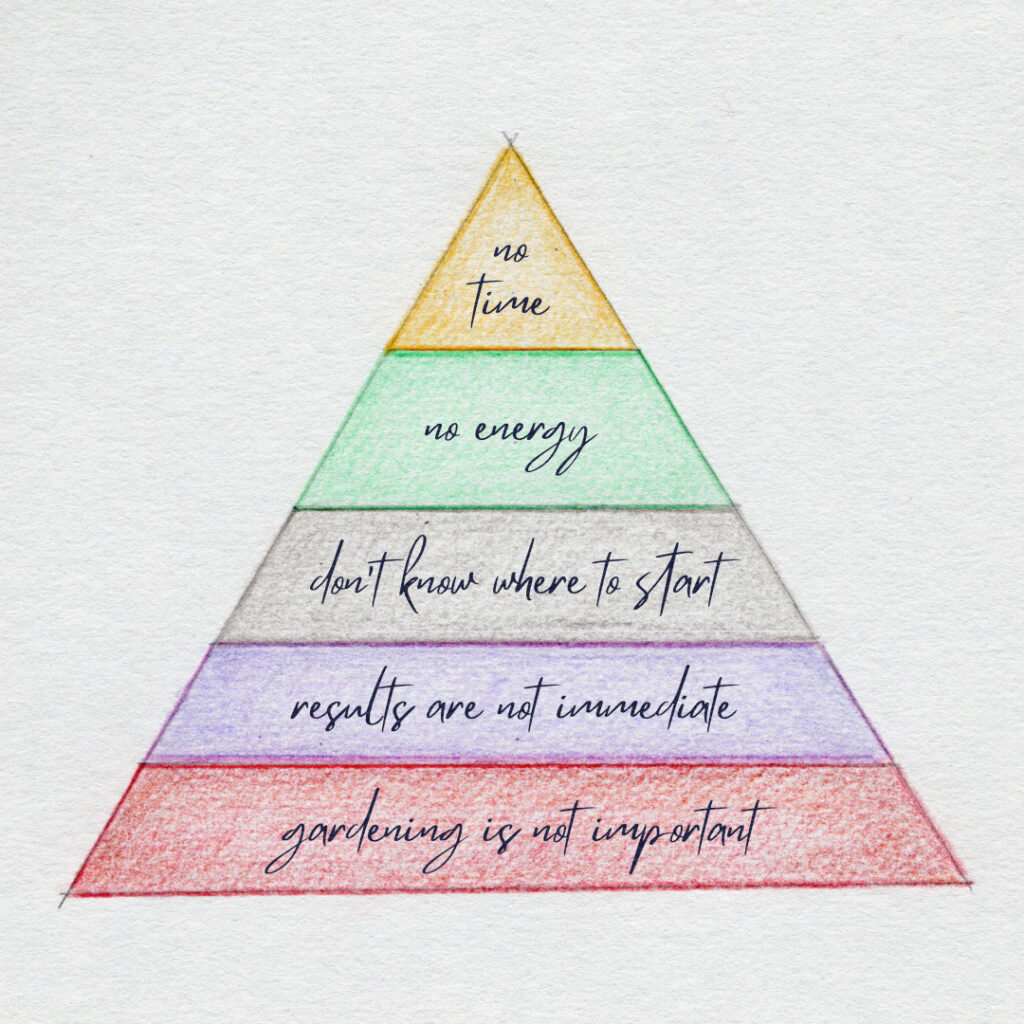 no
time
no energy
don't know where to start
results are not immediate
gardening is not important